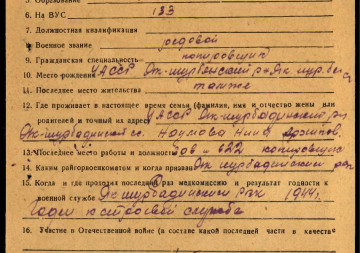 6. На ВУС 133
7. Должностная квалификация
8. Военное звание рядовой
9. Гражданская специальность копировщик
10. Место рождения УАССР Як-шурбинский р-н Як шур.
11. Последнее место жительства также
12. Где проживает в настоящее время семья (фамилия, имя и отчество жены или
родителей и точный их адрес) УАССР Як-шурбадинский рн
Як-шурбадинский сс. Наумова Нина
13. Последнее место работы и должность 622 копировщик
14. Каким райгорвоенкоматом и когда призван Як шурбадинский рвк
15. Когда и где проходил последний раз медкомиссию и результат годности к
военной службе Як шурбадинский РВК 1944г.
Годен к строевой службе
16. Участие в Отечественной войне (в составе какой последней части в качестве